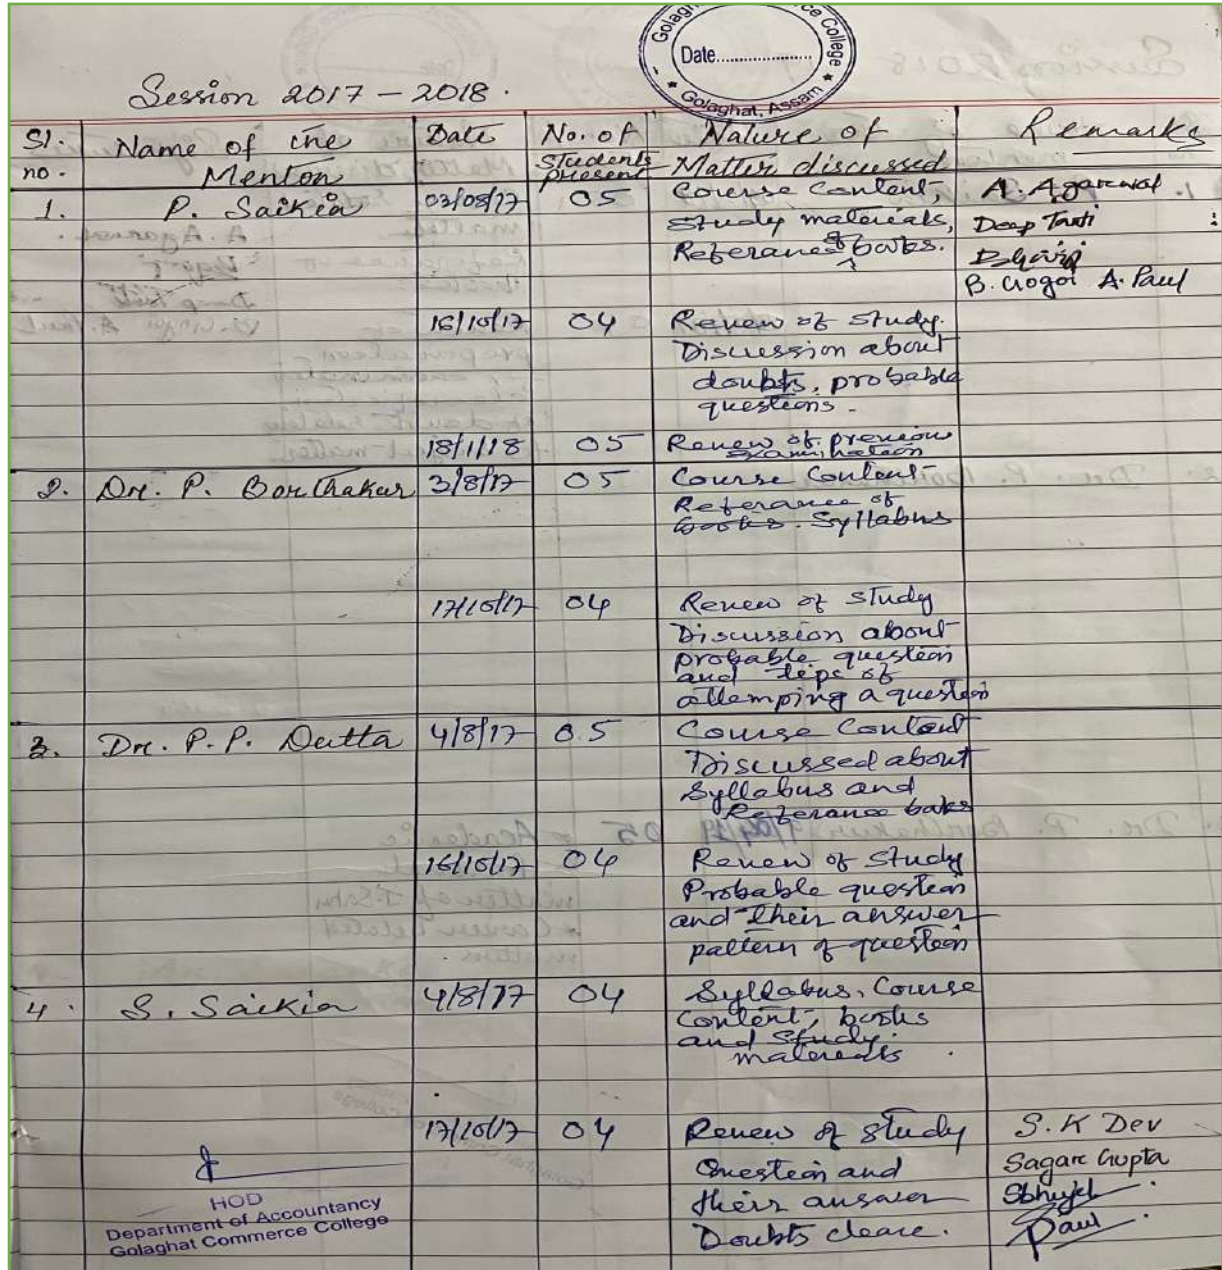 Golaghat Commerce College
Date....................
★ Golaghat, Assam ★
Session 2017 - 2018.
Sl. no. Name of the Mentor Date No. of Students present Nature of Matter discussed Remarks
1. P. Saikia 03/08/17 05 Course Content, A. Agarwal
Study materials, Deep Tanti
Referance of books.
B. Gogoi A. Paul
16/10/17 04 Revew of study.
Discussion about
doubts, probable
questions.
18/1/18 05 Revew of previous
examination
2. Dr. P. Borthakur 3/8/17 05 Course Content
Referance of
books. Syllabus
17/10/17 04 Revew of study
Discussion about
probable question
and tips of
attemping a question
3. Dr. P. P. Dutta 4/8/17 05 Course Content
Discussed about
Syllabus and
Referance books
16/10/17 04 Revew of study
Probable question
and their answer
pattern of question
4. S. Saikia 4/8/17 04 Syllabus, Course
Content, books
and study
matereals
17/10/17 04 Revew of study S. K Dev
Question and Sagar Gupta
their answer
Doubts cleare. Paul
HOD
Department of Accountancy
Golaghat Commerce College